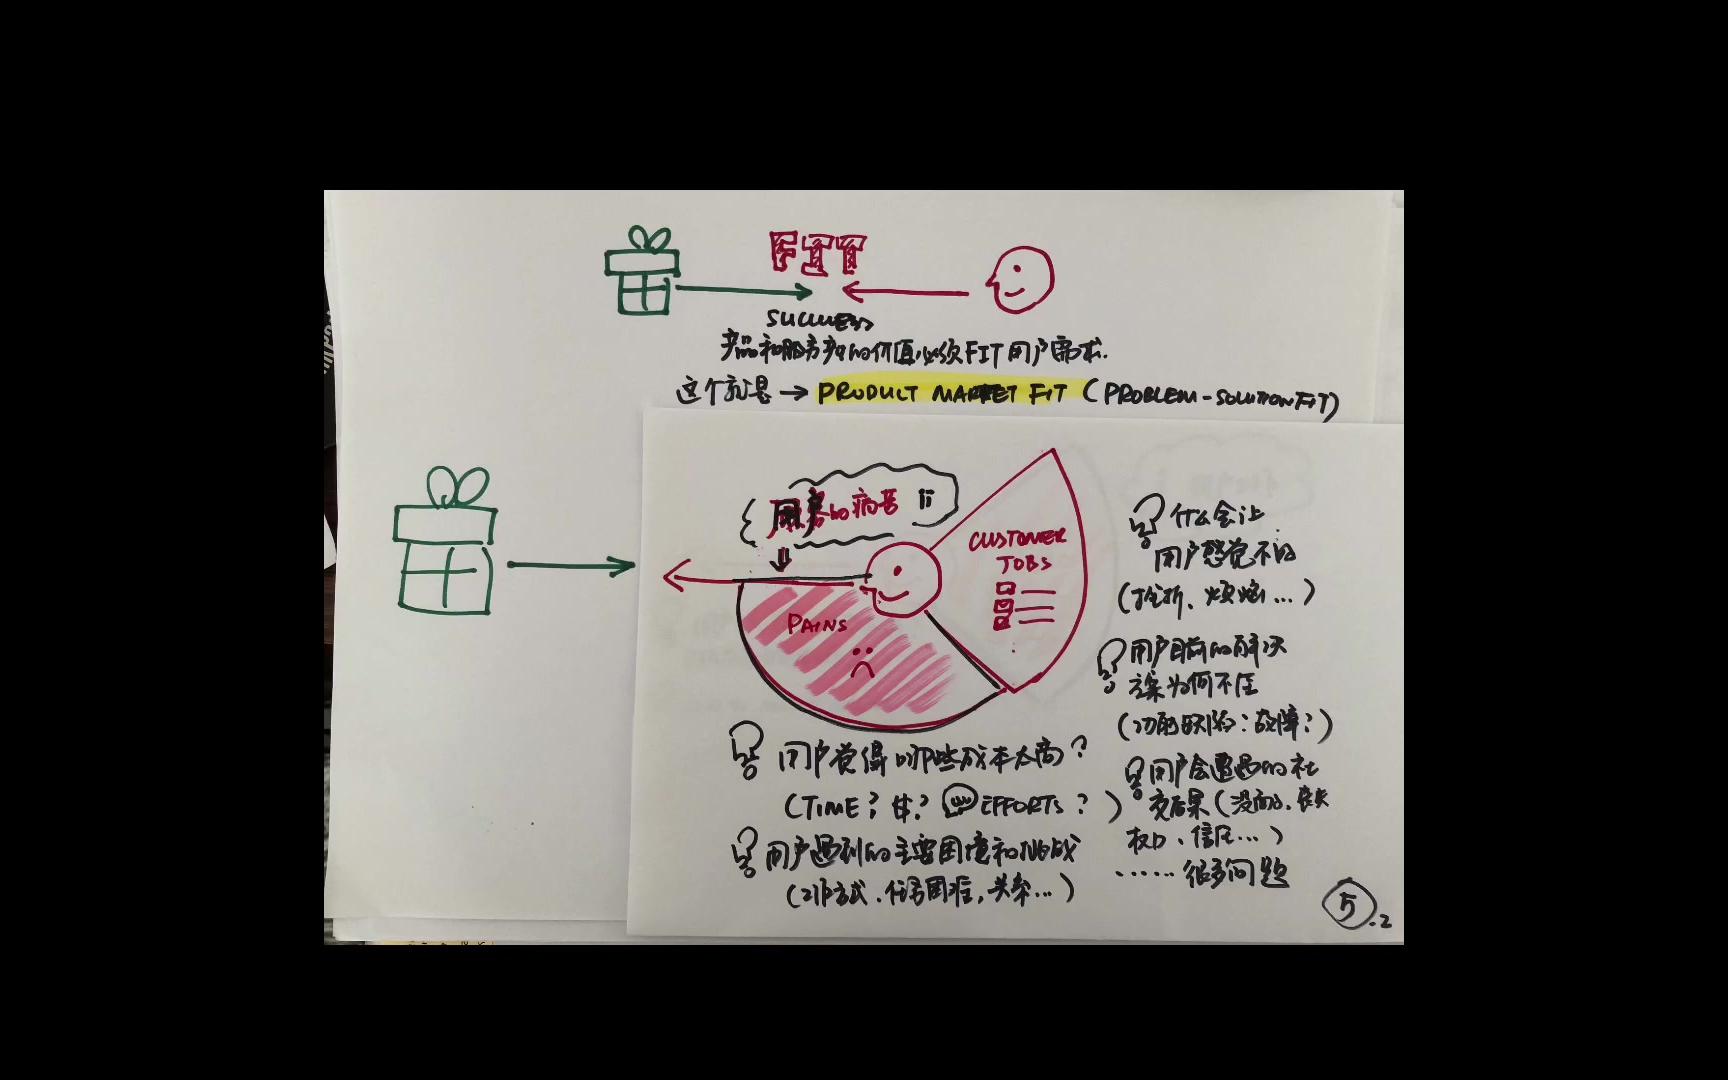 FIT
SUCCESS
产品和服务的价值必须FIT用户需求.
这个就是→ PRODUCT MARKET FIT (PROBLEM-SOLUTION FIT)
用户的病苦
CUSTOMER
JOBS
PAINS
什么会让
用户感觉不好
(挫折、烦恼...)
用户目前的解决
方案为何不佳
(功能缺陷?故障?)
用户会遭遇的社
交后果(没面子、丧失
权力、信任...)
......很多问题
用户觉得哪些成本太高?
(TIME? 钱? EFFORTS?)
用户遇到的主要困境和挑战
(工作方式、任务困难,关系...)
5.2